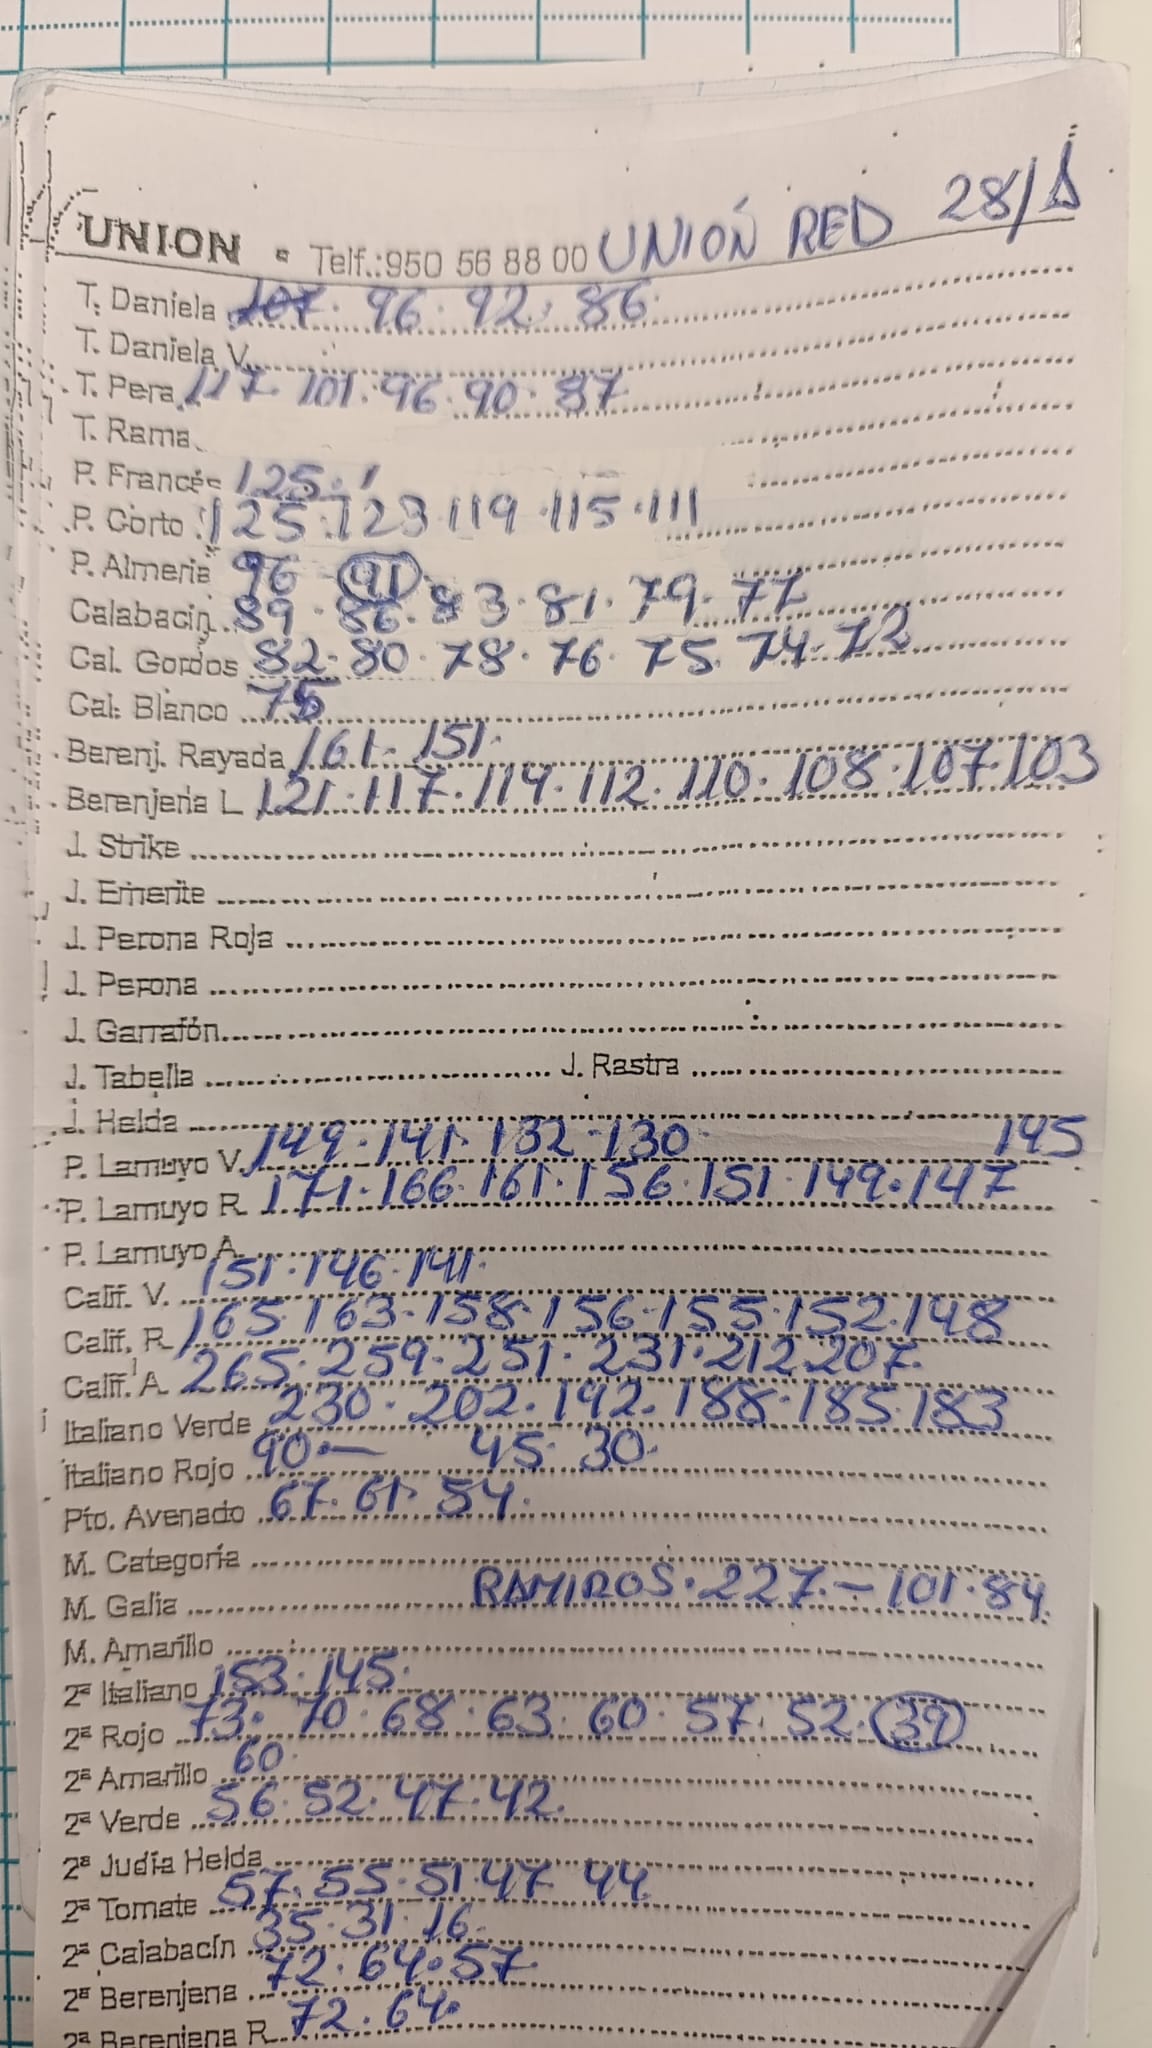 UNION - Telf.:950 56 88 00 UNIÓN RED 28/1
T. Daniela 107. 96. 92. 86.
T. Daniela V.
T. Pera 117. 101. 96. 90. 87
T. Rama
P. Francés 125.
P. Corto 125. 123 119. 115. 111
P. Almeria 96 - 91
Calabacin 89. 86. 83. 81. 79. 77
Cal. Gordos 82. 80. 78. 76. 75. 74. 72
Cal. Blanco 75
Berenj. Rayada 161. 151.
Berenjena L 121. 117. 114. 112. 110. 108. 107. 103
J. Strike
J. Emerite
J. Perona Roja
J. Perona
J. Garrafón
J. Tabella J. Rastra
J. Helda
P. Lamuyo V. 149. 141. 132. 130. 145
P. Lamuyo R. 171. 166. 161. 156. 151. 149. 147
P. Lamuyo A.
Calif. V. 151. 146. 141.
Calif. R. 165. 163. 158. 156. 155. 152. 148
Calif. A. 265. 259. 251. 231. 212. 207.
Italiano Verde 230. 202. 192. 188. 185. 183
Italiano Rojo 90. — 45. 30.
Pto. Avenado 67. 61. 54.
M. Categoría
M. Galia RAMIROS. 227. — 101. 84.
M. Amarillo
2ª Italiano 153. 145.
2ª Rojo 73. 70. 68. 63. 60. 57. 52. 39
2ª Amarillo 60.
2ª Verde 56. 52. 47. 42.
2ª Judía Helda
2ª Tomate 57. 55. 51. 47. 44
2ª Calabacín 35. 31. 16.
2ª Berenjena 72. 64. 57
2ª Berenjena R. 72. 64.